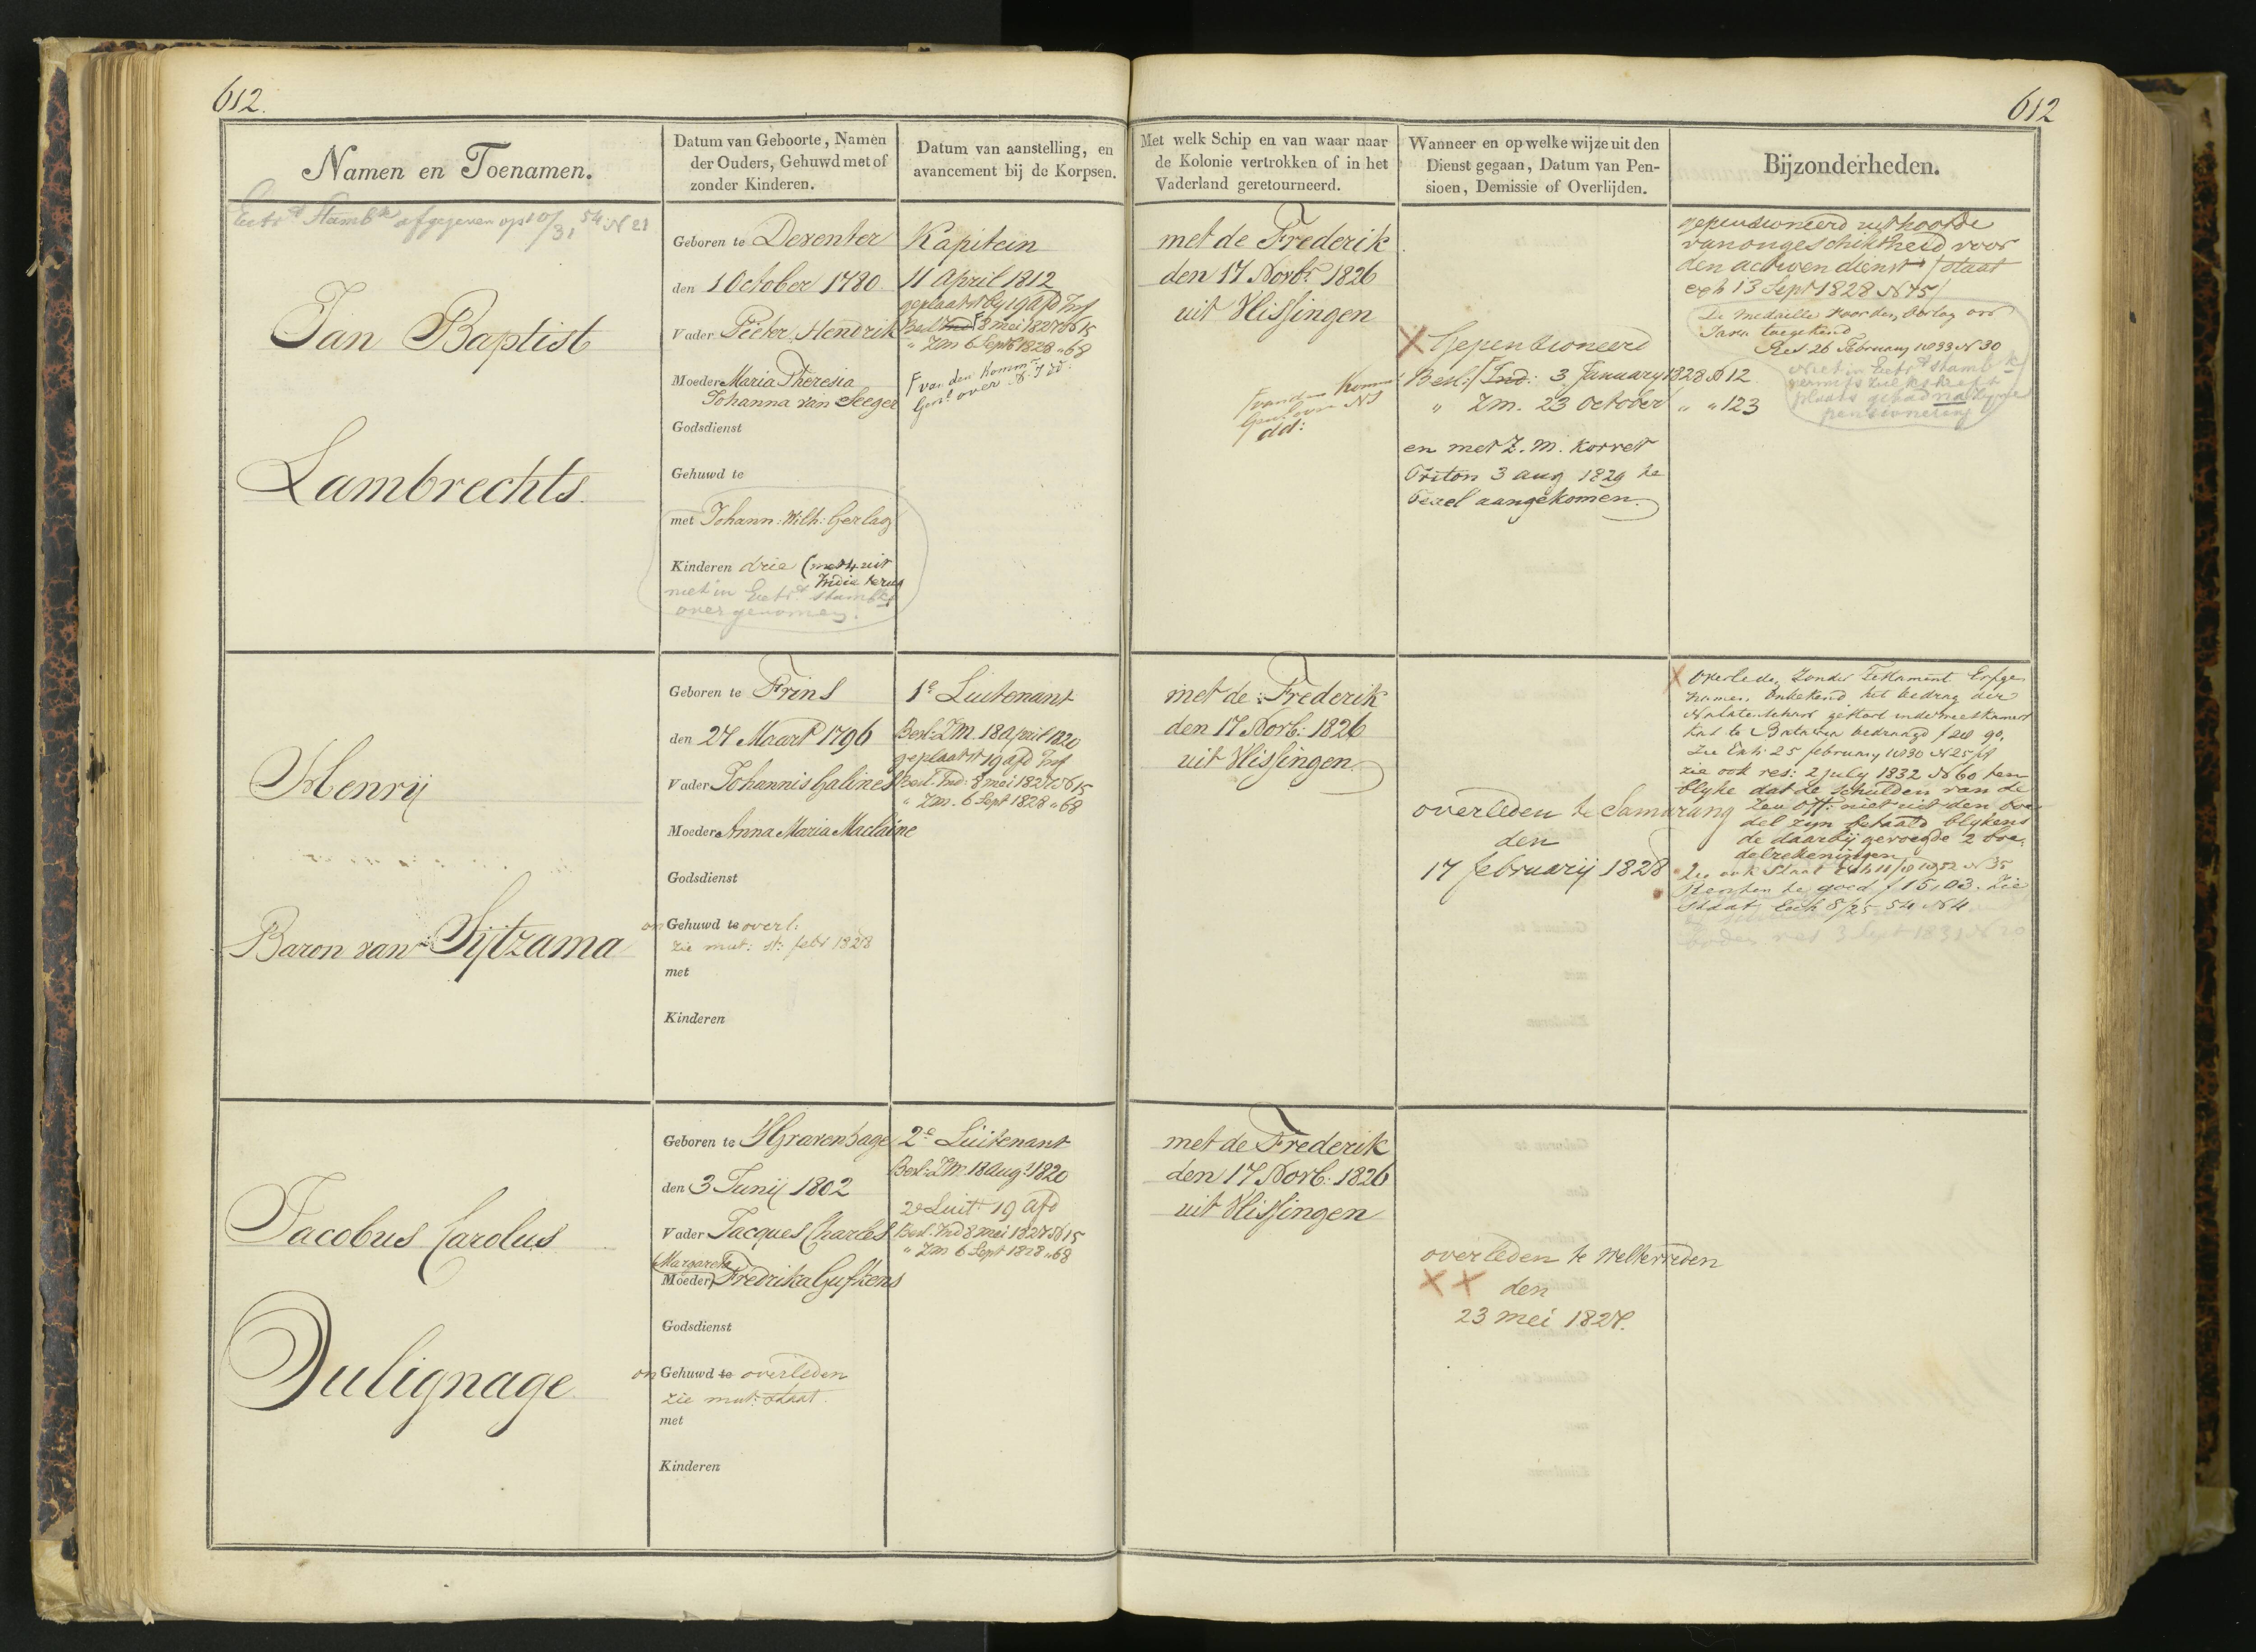 612.
612
Namen en Toenamen.
Datum van Geboorte, Namen
der Ouders, Gehuwd met of
zonder Kinderen.
Datum van aanstelling, en
avancement bij de Korpsen.
Met welk Schip en van waar naar
de Kolonie vertrokken of in het
Vaderland geretourneerd.
Wanneer en op welke wijze uit den
Dienst gegaan, Datum van Pen-
sioen, Demissie of Overlijden.
Bijzonderheden.
Extr.t Stamb.k afgegeven op 10/31 54 N 21
Jan Baptist
Lambrechts
Geboren te Deventer
den 1 October 1780
Vader Pieter Hendrik
Moeder Maria Theresia
Johanna van Seeger
Godsdienst
Gehuwd te
met Johann: Wilh: Gerlag
Kinderen drie (met 4 uit
Indie terug
niet in Extr.t Stamb.k
overgenomen.
Kapitein
11 April 1812
geplaatst by 19 afd Inf
Besl Ind 8 mei 1827 N 15
" ZM 6 Sept 1828 " 68
F van den Komm.r
Gen.l over N. I dd.
met de Frederik
den 17 Novb.r 1826
uit Vlissingen
X Gepensioneerd
Besl: F Ind: 3 January 1828 N 12
" ZM. 23 October " " 123
F van den Komm
Gen over NI
dd:
en met Z. M. Korvet
Triton 3 aug 1829 te
Texel aangekomen.
gepensioneerd uit hoofde
van ongeschiktheid voor
den activen dienst / staat
exh 13 Sept 1828 N 45/
De medaille voor den Oorlog op
Java toegekend
Res 26 February 1833 N 30
Niet in Extr.t Stamb.k
vermits zulks heeft
plaats gehad na zyne
pensionering
Henrij
Baron van Sijtzama
Geboren te Frins
den 27 Maart 1796
Vader Johannis Galines
Moeder Anna Maria Maclaine
Godsdienst
on Gehuwd te overl:
zie mut: st: feb 1828
met
Kinderen
1e Luitenant
Besl: ZM. 18 April 1820
geplaatst 19 afd Inf
Besl. Ind: 8 mei 1827 N 15
" ZM. 6 Sept 1828 " 68
met de Frederik
den 17 Novb: 1826
uit Vlissingen
overleden te Samarang
den
17 februarij 1828
X overleden zonder Testament Erfge
namen onbekend het bedrag der
Nalatenschap gestort in de weeskamer
te Batavia
zie Exh: 25 february 1830 N 25
zie ook res: 2 july 1832 N 60 ten
blyke dat de schulden van de
zen off: niet uit den boe
del zyn betaald blykens
de daarbij gevoegde 2 boe.
delrekeningen
zie ook Staat Exh N 35
Renten te goed f 15,03. zie
Staat Exh 8/25 54 N 4
3 Sept 1831 N 20
Jacobus Carolus
Dulignage
Geboren te 'sGravenhage
den 3 Junij 1802
Vader Jacques Charles
Margareta
Moeder Fredrika Gufkens
Godsdienst
on Gehuwd te overleden
zie mut: staat
met
Kinderen
2e Luitenant
Besl: ZM. 18 Aug.t 1820
2e Luit 19 afd
Besl. Ind 8 mei 1827 N 15
" ZM 6 Sept 1828 " 68
met de Frederik
den 17 Novb: 1826
uit Vlissingen
overleden te Weltevreden
X X den
23 mei 1827.